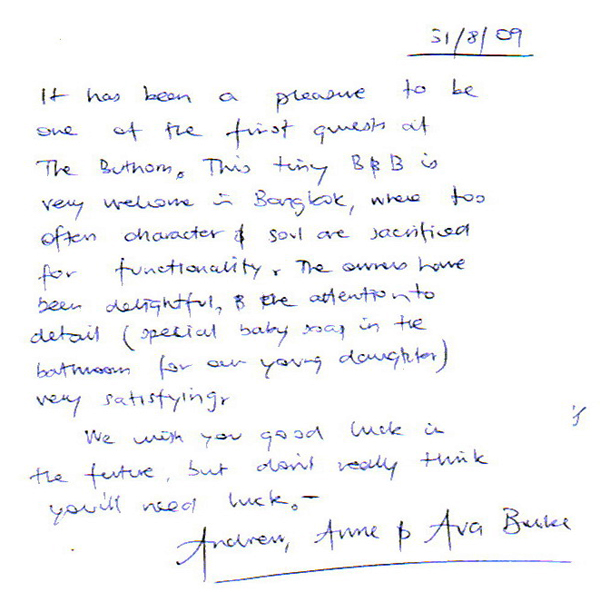 31/8/09
It has been a pleasure to be
one of the first guests at
The Buthorn. This tiny B&B is
very welcome in Bangkok, where too
often character & soul are sacrificed
for functionality. The owners have
been delightful, & the attention to
detail (special baby soap in the
bathroom for our young daughter)
very satisfying.
We wish you good luck in
the future, but don't really think
you'll need luck.-
Andrew, Anne & Ava